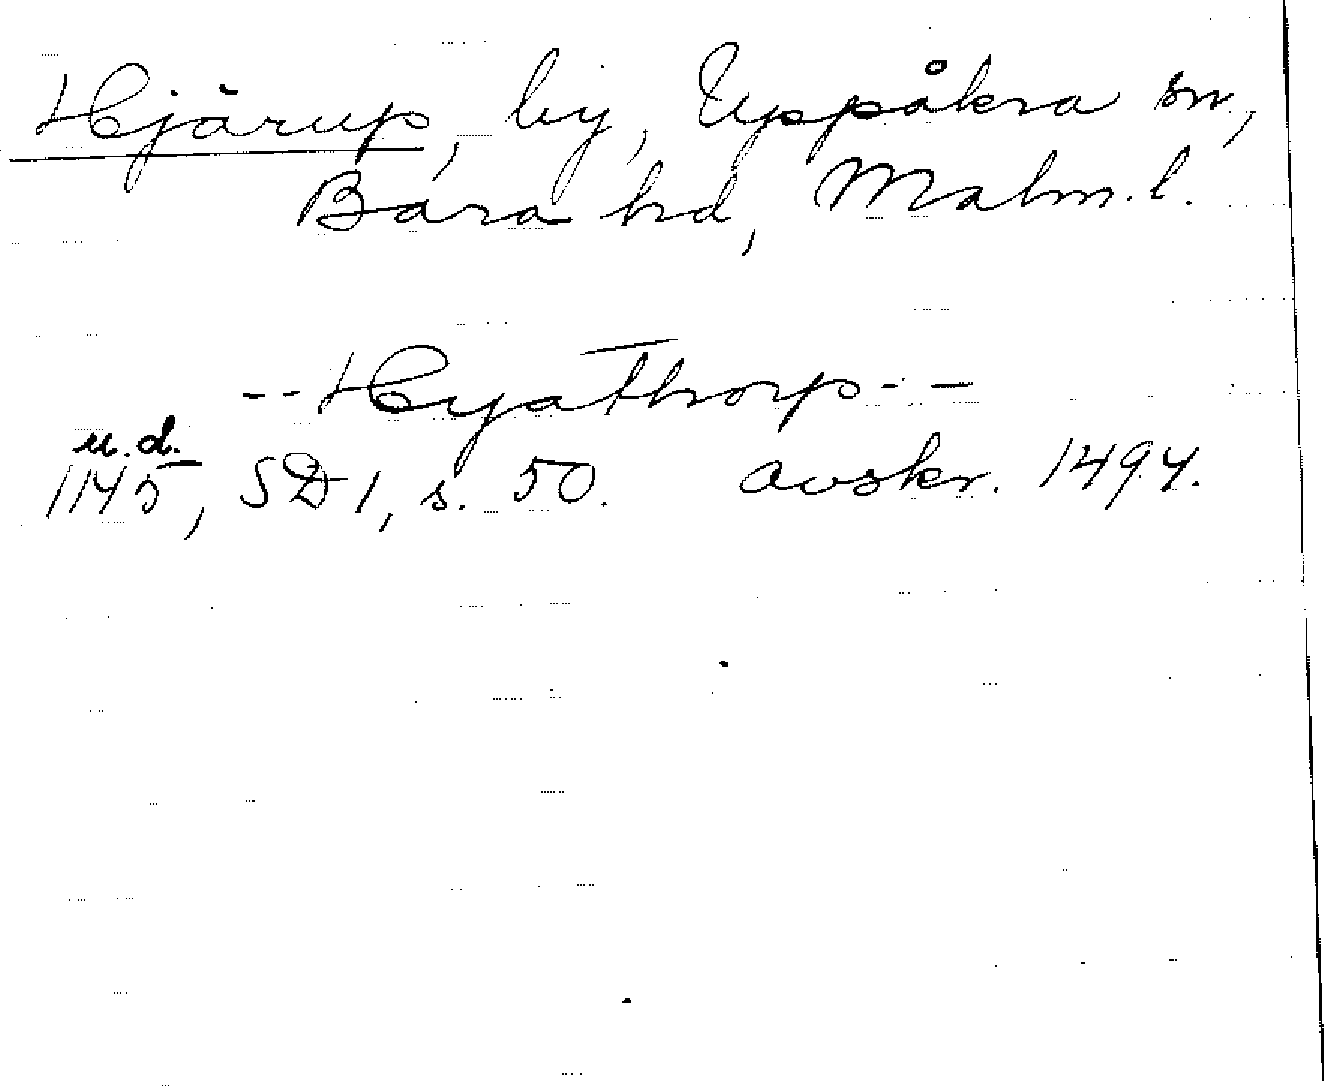 Hjärup, by, Uppåkra sn,
Bara hd, Malm.l.
--Hyathorp--
u.d.
1145, SD 1, s. 50. avskr. 1494.